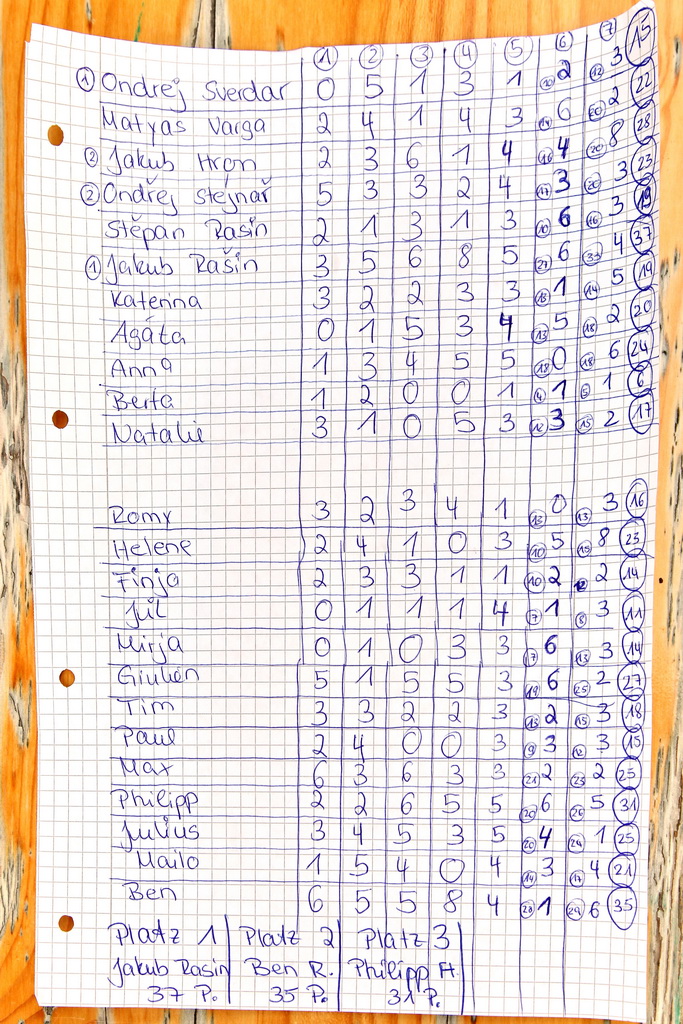 ① ② ③ ④ ⑤ ⑥ ⑦
① Ondřej Sverdar 0 5 1 3 1 ⑩ 2 ⑫ 3 ⑮
Matyas Varga 2 4 1 4 3 ⑭ 6 ⑳ 2 ㉒
② Jakub Hron 2 3 6 1 4 ⑯ 4 ⑳ 8 ㉘
② Ondřej Stejnař 5 3 3 2 4 ⑰ 3 ⑳ 3 ㉓
Stěpan Rasin 2 1 3 1 3 ⑩ 6 ⑯ 3 ⑲
① Jakub Rašin 3 5 6 8 5 ㉗ 6 ㉝ 4 ㊲
Katerina 3 2 2 3 3 ⑬ 1 ⑭ 5 ⑲
Agáta 0 1 5 3 4 ⑬ 5 ⑱ 2 ⑳
Anna 1 3 4 5 5 ⑱ 0 ⑱ 6 ㉔
Berta 1 2 0 0 1 ④ 1 ⑤ 1 ⑥
Natalie 3 1 0 5 3 ⑫ 3 ⑮ 2 ⑰
Romy 3 2 3 4 1 ⑬ 0 ⑬ 3 ⑯
Helene 2 4 1 0 3 ⑩ 5 ⑮ 8 ㉓
Finja 2 3 3 1 1 ⑩ 2 ⑫ 2 ⑭
Jül 0 1 1 1 4 ⑦ 1 ⑧ 3 ⑪
Mirja 0 1 0 3 3 6 ⑬ 3 ⑭
Giulien 5 1 5 5 3 ⑲ 6 ㉕ 2 ㉗
Tim 3 3 2 2 3 ⑬ 2 ⑮ 3 ⑱
Paul 2 4 0 0 3 ⑨ 3 ⑫ 3 ⑮
Max 6 3 6 3 3 ㉑ 2 ㉓ 2 ㉕
Philipp 2 2 6 5 5 ⑳ 6 ㉖ 5 ㉛
Julius 3 4 5 3 5 ⑳ 4 ㉔ 1 ㉕
Mailo 1 5 4 0 4 ⑭ 3 ⑰ 4 ㉑
Ben 6 5 5 8 4 ㉘ 1 ㉙ 6 ㉟
Platz 1 Platz 2 Platz 3
Jakub Rasin Ben R. Philipp A.
37 P. 35 P. 31 P.